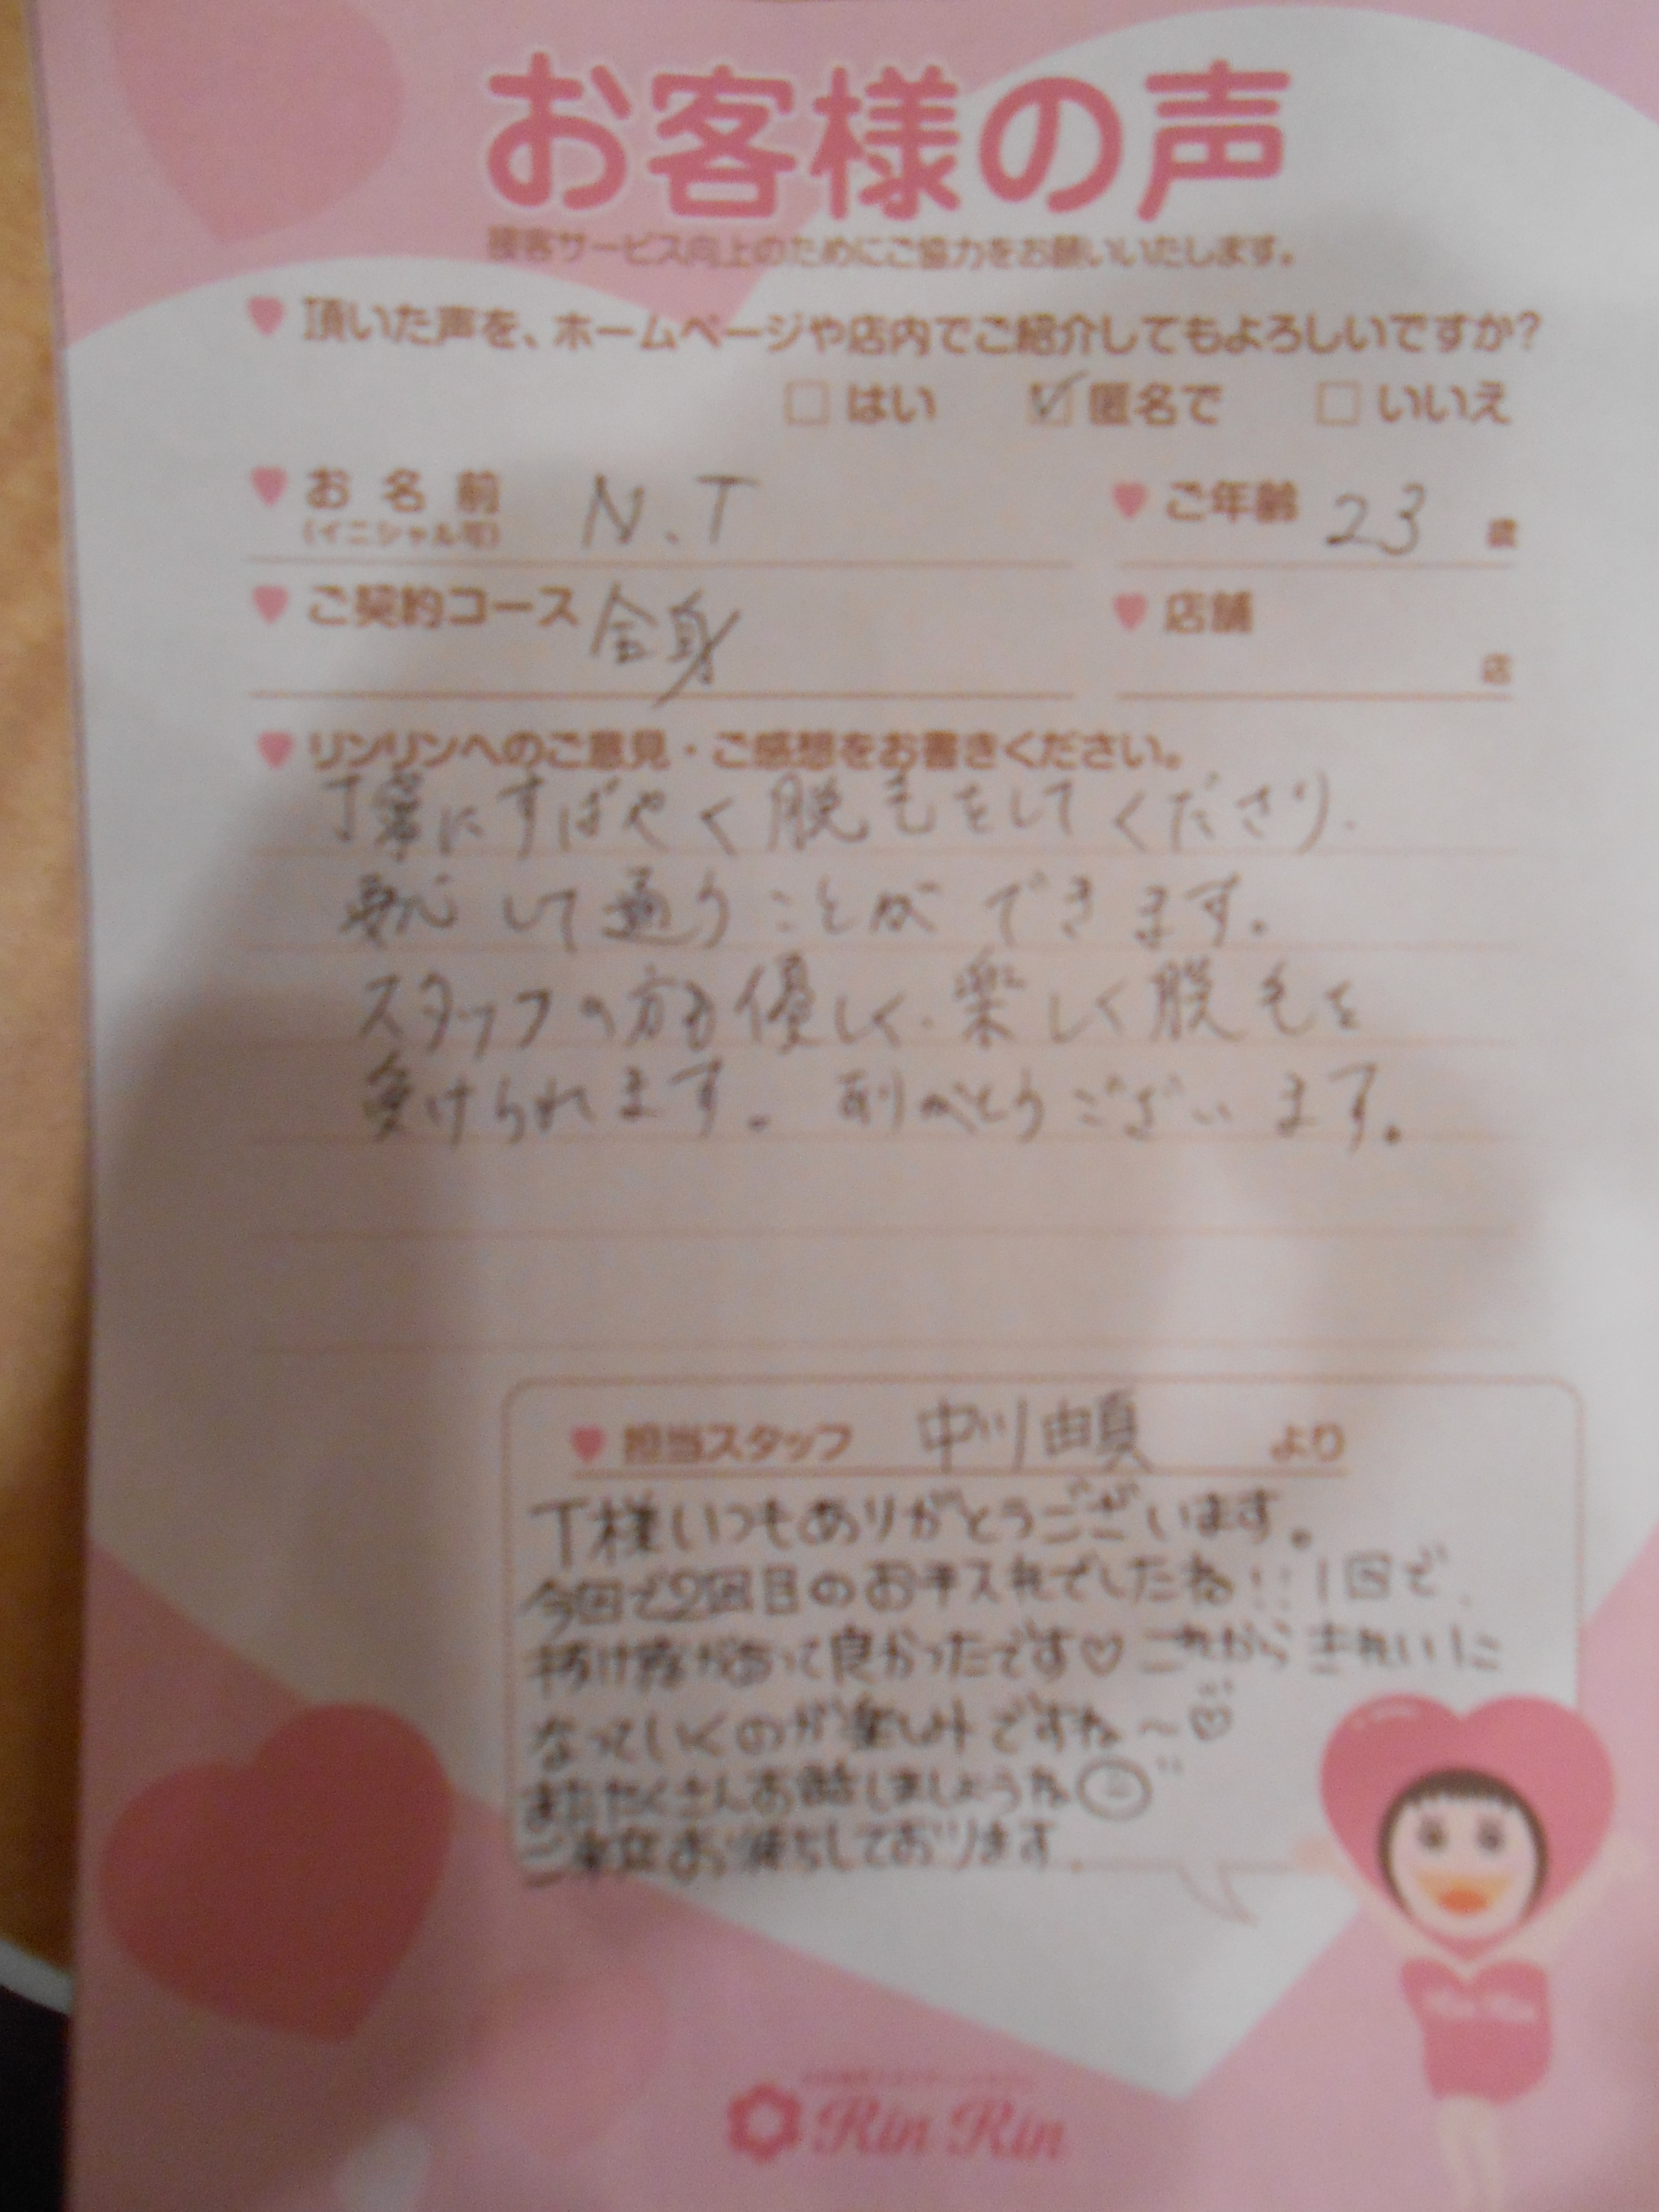 お客様の声
接客サービス向上のためにご協力をお願いいたします。
頂いた声を、ホームページや店内でご紹介してもよろしいですか?
はい 匿名で いいえ
お名前 N.T ご年齢 23 歳
(イニシャル可)
ご契約コース 全身 店舗
店
リンリンへのご意見・ご感想をお書きください。
丁寧にすばやく脱毛をしてくださり、
安心して通うことができます。
スタッフの方も優しく、楽しく脱毛を
受けられます。有りがとうございます。
担当スタッフ 中川 より
T様いつもありがとうございます。
今回で2回目のお手入れでしたね!!1回で
抜け感があって良かったです♡これからきれいに
なっていくのが楽しみですね〜
またたくさんお話しましょうね
ご来店お待ちしております
Rin Rin